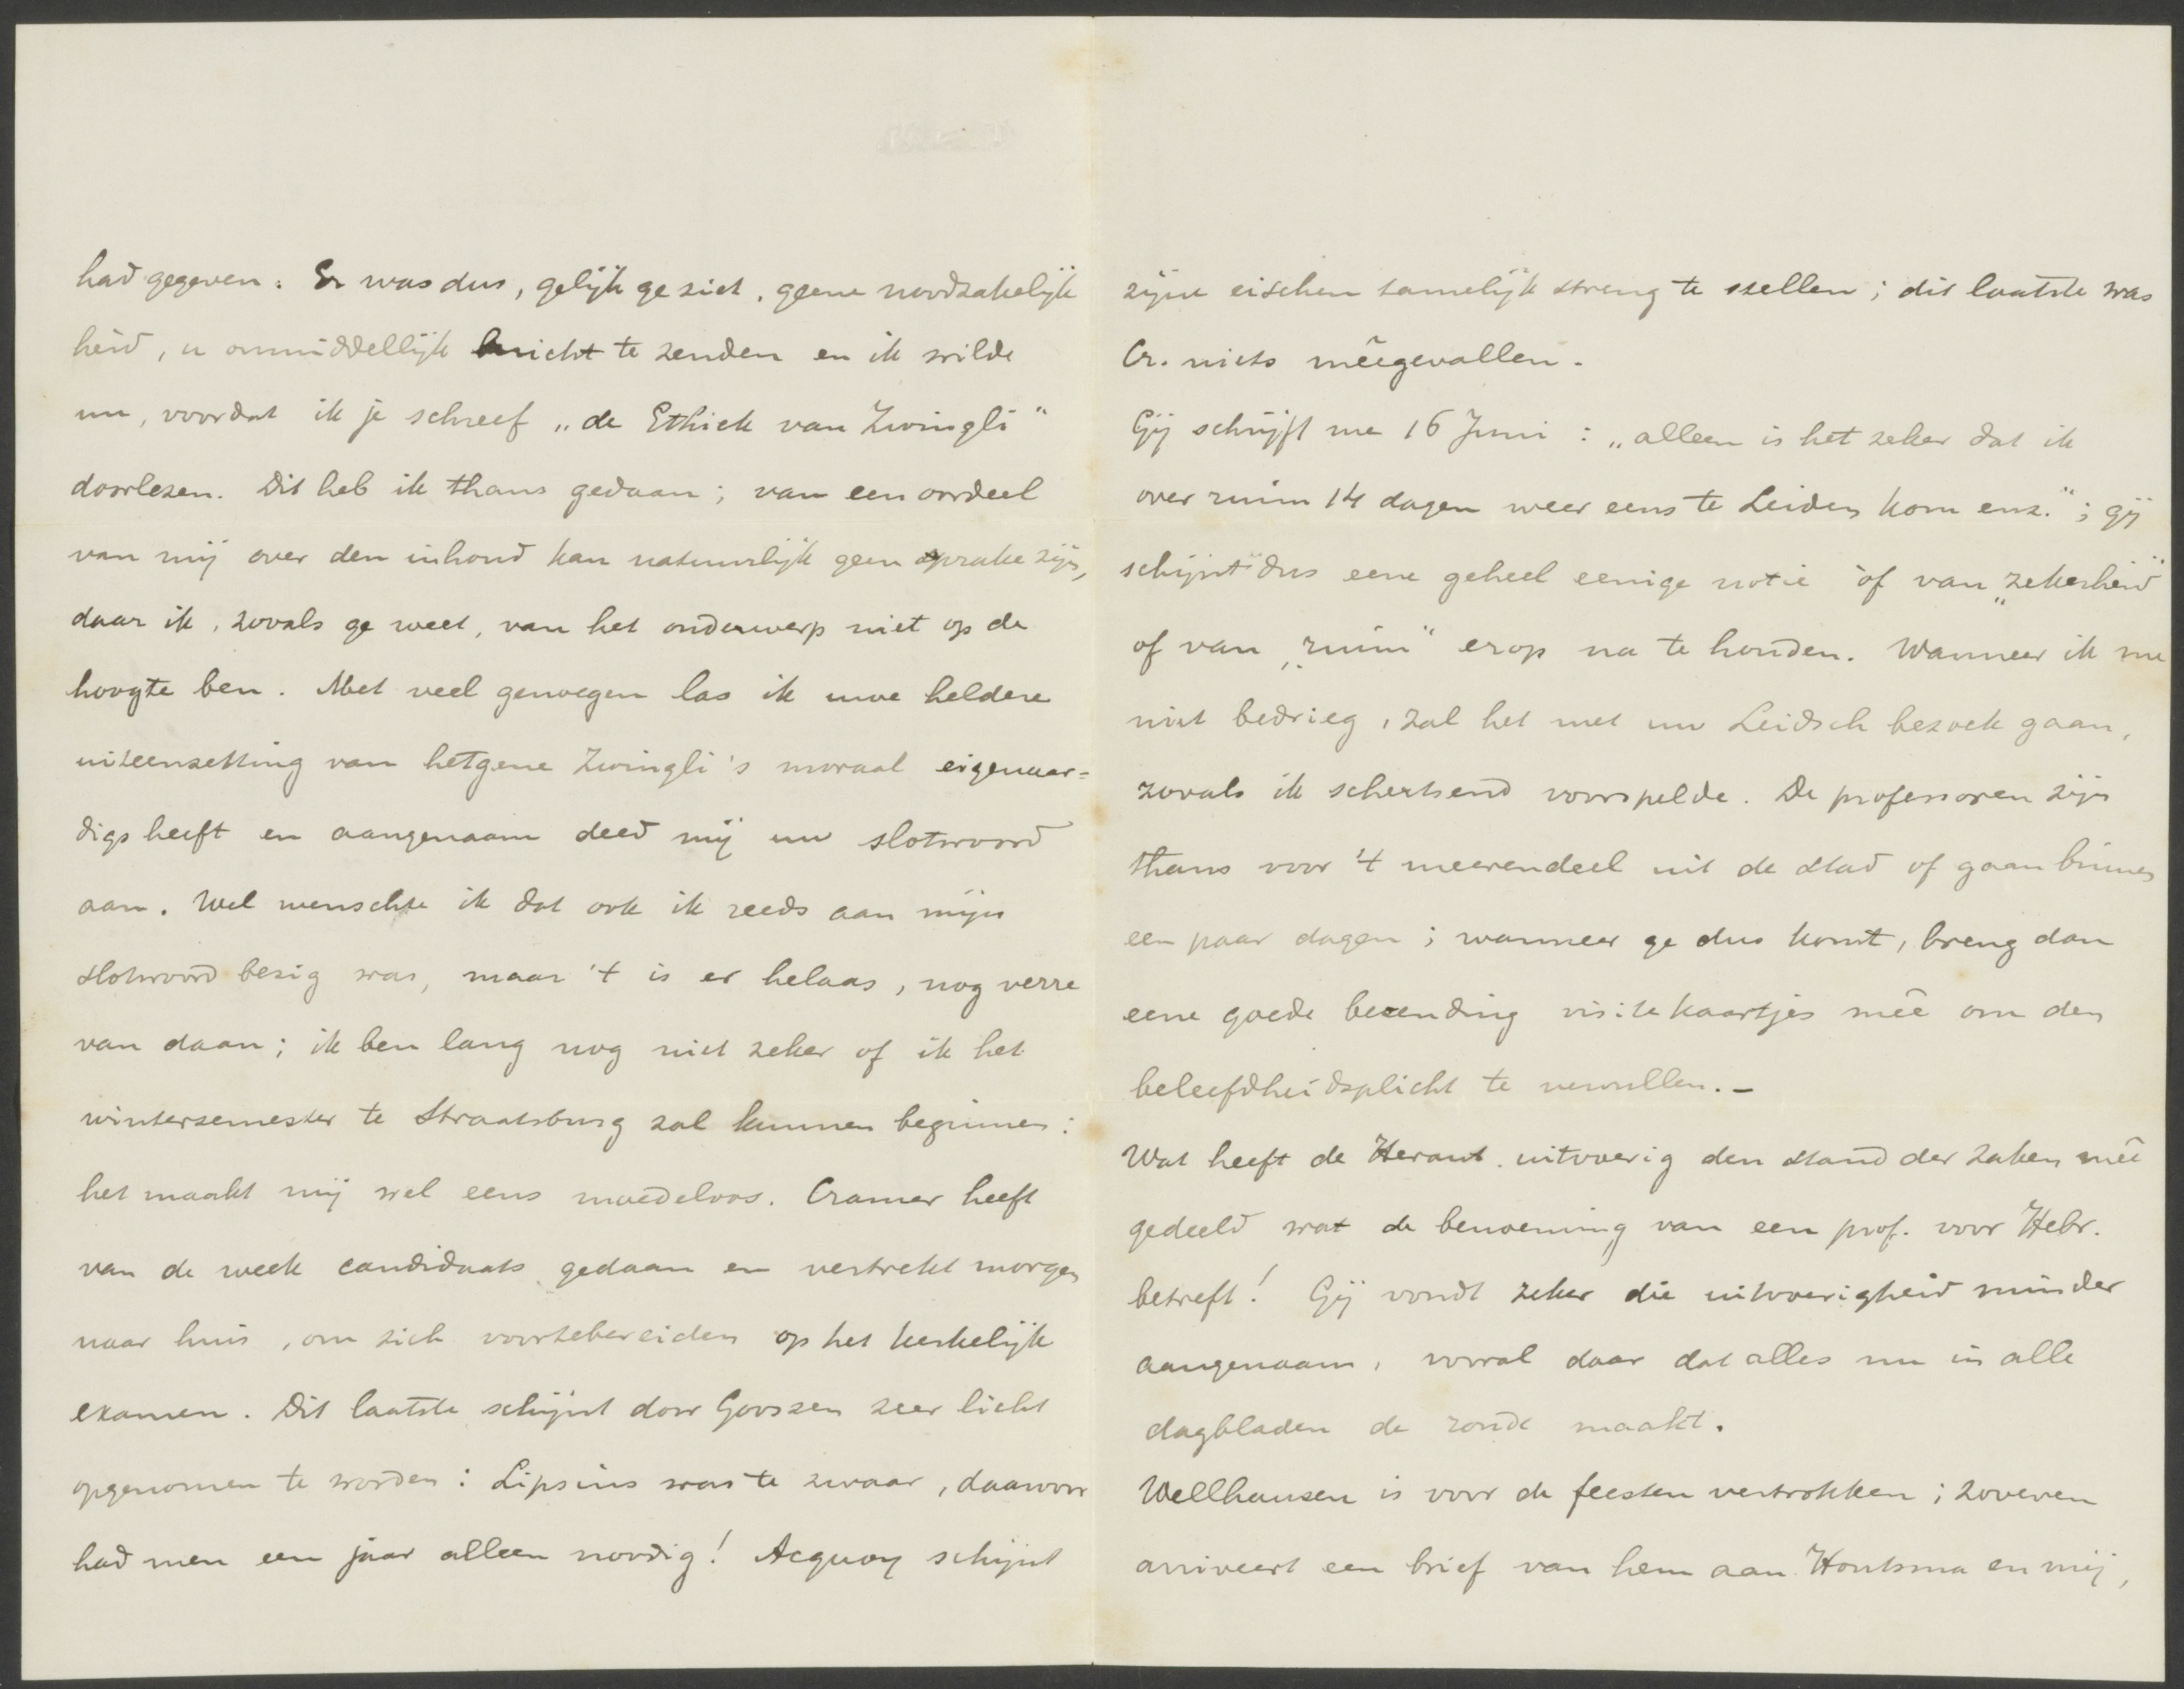 had gegeven. Er was dus, gelijk ge ziet, geene noodzakelijk
heid, u onmiddellijk bericht te zenden en ik wilde
nu, voordat ik je schreef „de Ethiek van Zwingli"
doorlezen. Dit heb ik thans gedaan; van een oordeel
van mij over den inhoud kan natuurlijk geen sprake zijn,
daar ik, zooals ge weet, van het onderwerp niet op de
hoogte ben. Met veel genoegen las ik uwe heldere
uiteenzetting van hetgene Zwingli's moraal eigenaar=
digs heeft en aangenaam deed mij uw slotwoord
aan. Wel wenschte ik dat ook ik reeds aan mijn
slotwoord bezig was, maar 't is er helaas, nog verre
van daan; ik ben lang nog niet zeker of ik het
wintersemester te Straatsburg zal kunnen beginnen:
het maakt mij wel eens moedeloos. Cramer heeft
van de week candidaats gedaan en vertrekt morgen
naar huis, om zich voortebereiden op het kerkelijk
examen. Dit laatste schijnt door Gooszen zeer licht
opgenomen te worden: Lipsius was te zwaar, daarvoor
had men een jaar alleen noodig! Acquoy schijnt
zijne eischen tamelijk streng te stellen; dit laatste was
Cr. niets meêgevallen.
Gij schrijft me 16 Juni: „alleen is het zeker dat ik
over ruim 14 dagen weer eens te Leiden kom enz."; gij
schijnt dus eene geheel eenige notie òf van „zekerheid"
of van „ruim" erop na te houden. Wanneer ik me
niet bedrieg, zal het met uw Leidsch bezoek gaan,
zooals ik schertsend voorspelde. De professoren zijn
thans voor 't meerendeel uit de stad of gaan binnen
een paar dagen; wanneer ge dus komt, breng dan
eene goede bezending visitekaartjes meê om den
beleefdheidsplicht te vervullen.—
Wat heeft de Heraut uitvoerig den stand der zaken meê
gedeeld wat de benoeming van een prof. voor Hebr.
betreft! Gij vondt zeker die uitvoerigheid minder
aangenaam, vooral daar dat alles nu in alle
dagbladen de ronde maakt.
Wellhausen is voor de feesten vertrokken; zooeven
arriveert een brief van hem aan Houtsma en mij,